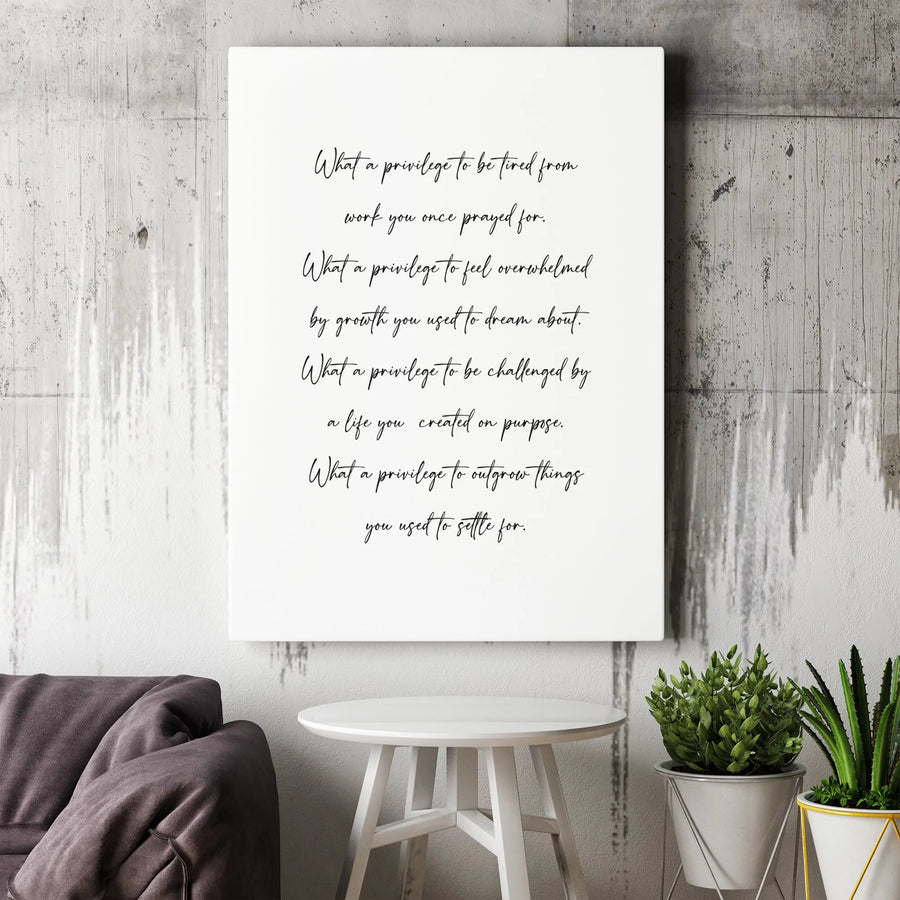 What a privilege to be tired from
work you once prayed for.
What a privilege to feel overwhelmed
by growth you used to dream about.
What a privilege to be challenged by
a life you created on purpose.
What a privilege to outgrow things
you used to settle for.